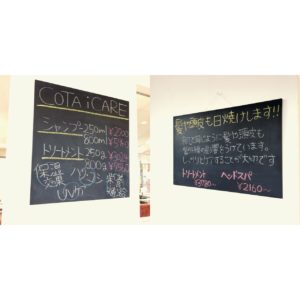 COTA i CARE
シャンプー250ml
800ml
トリートメント250g
800g
保湿
効果
ハリ・コシ
UVケア
栄養
補給
髪や頭皮も日焼けします!!
肌と同じように髪や頭皮も
紫外線の影響をうけています。
しっかりとケアすることが大切です
トリートメント
ヘッドスパ
¥2160〜